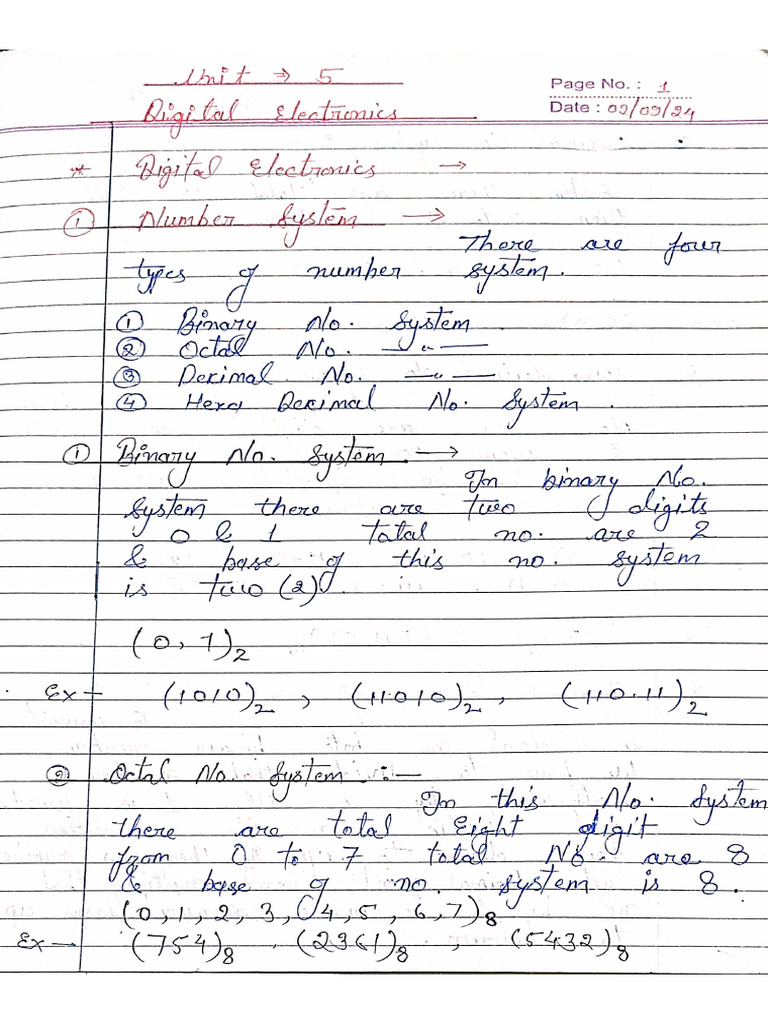 Unit ⇒ 5
Page No. : 1
Digital Electronics
Date : 02/09/24
* Digital Electronics →
① Number System →
There are four
types of number system.
① Binary No. System
② Octal No. —〃—
③ Decimal No. —〃—
④ Hexa Decimal No. System.
① Binary No. System. →
In binary No.
System there are two digits
0 & 1 total no. are 2
& base of this no. system
is two (2).
(0, 1)₂
Ex – (1010)₂ , (11010)₂ , (110.11)₂
② Octal No. System :–
In this No. System
there are total Eight digit
from 0 to 7 total No. are 8
& base of no. system is 8.
(0, 1, 2, 3, 4, 5, 6, 7)₈
Ex – (754)₈ , (2361)₈ , (5432)₈